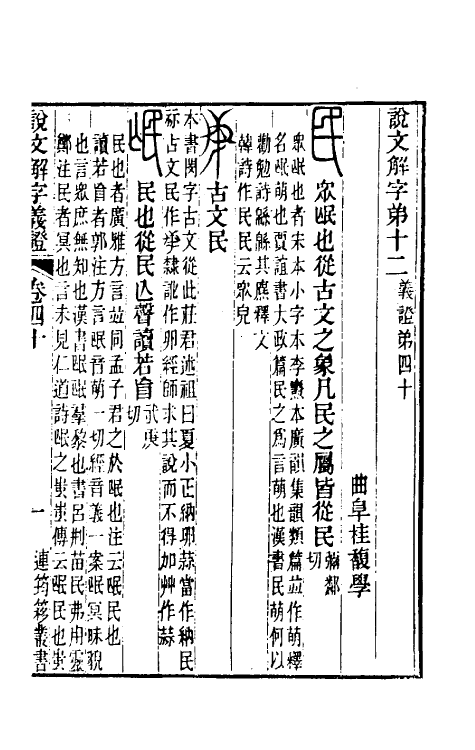 說文解字弟十二 義證弟四十
曲阜桂馥學
眾氓也從古文之象凡民之屬皆從民 彌鄰切
眾氓也者宋本小字本李燾本廣韻集韻類篇竝作萌釋
名氓萌也賈誼書大政篇民之為言萌也漢書民萌何以
勸勉詩緜緜其麃釋文
韓詩作民民云眾皃
古文民
本書閔字古文從此莊君述祖曰夏小正納卵蒜當作納民
祘古文民作𠁅隸訛作卵經師求其說而不得加艸作蒜
民也從民亾聲讀若盲 武庚切
民也者廣雅方言竝同孟子君之於氓也注云氓民也
讀若盲者郭注方言氓音萌一切經音義一案氓冥昧貌
也言眾庶無知也漢書氓氓羣黎也書呂刑苗民弗用靈
鄭注民者冥也言未見仁道詩氓之蚩蚩傳云氓民也蚩
說文解字義證 卷四十 一 連筠簃叢書